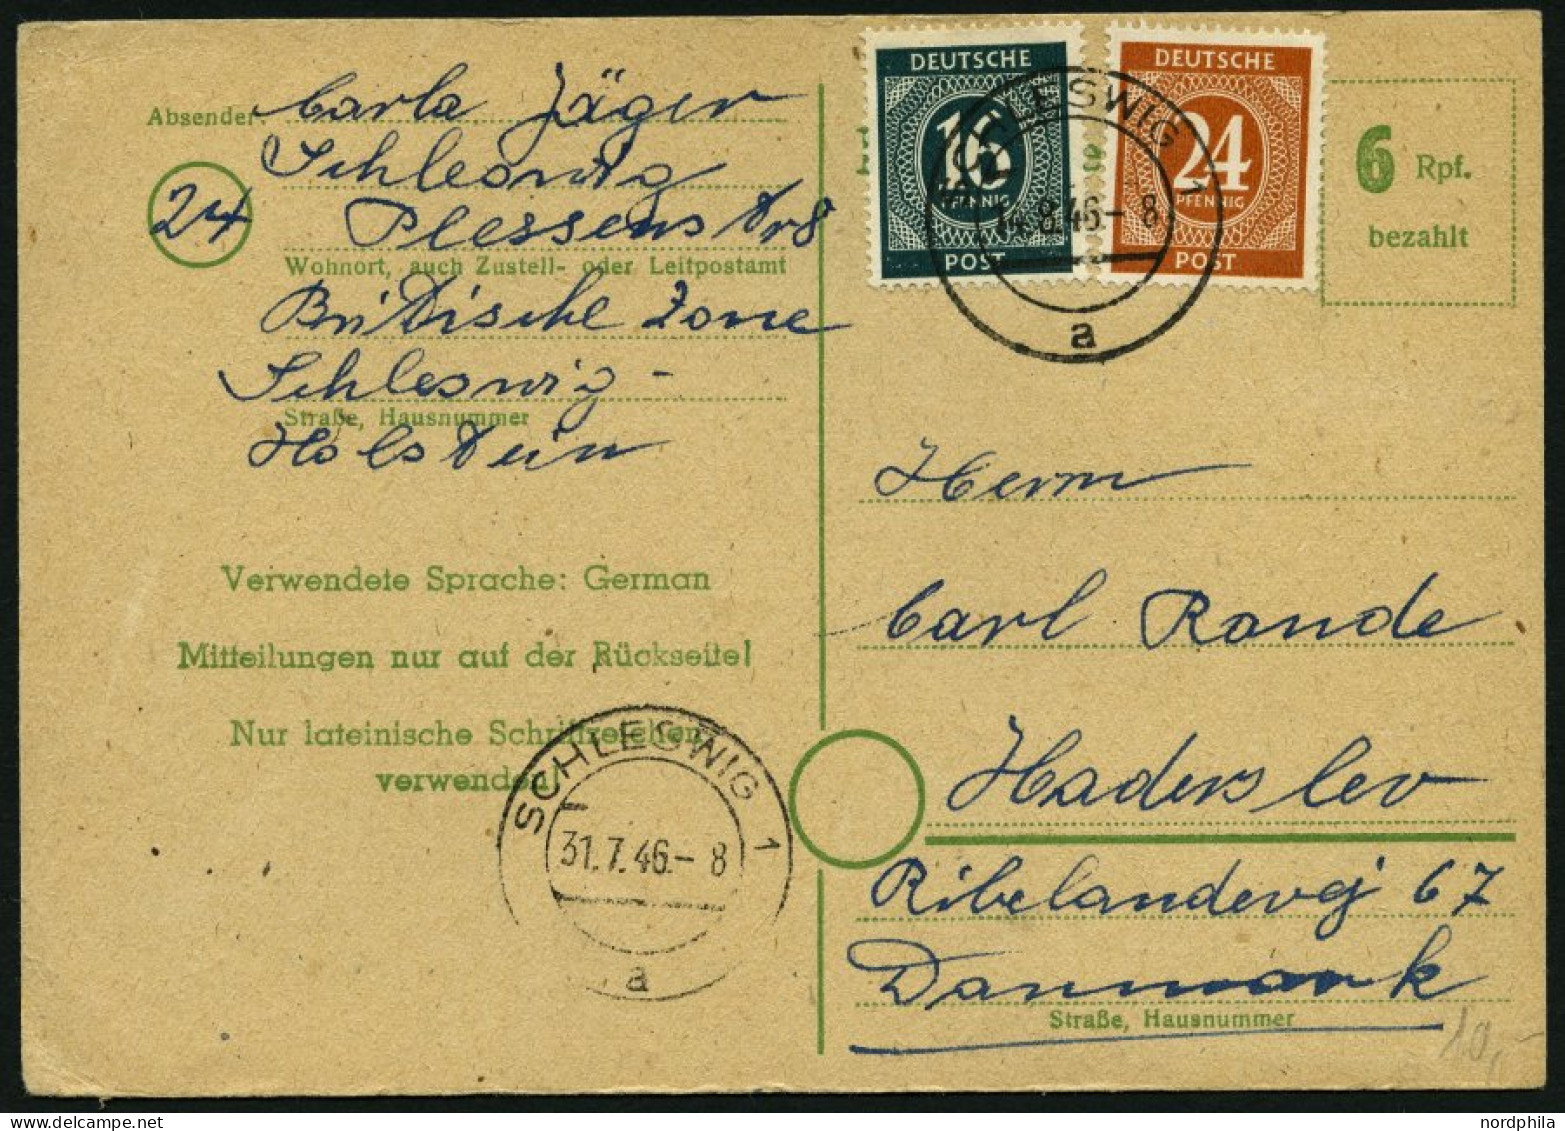 Absender
Carla Jäger
Schleswig
24
Plessenstr 8
Wohnort, auch Zustell- oder Leitpostamt
Britische Zone
Schleswig -
Straße, Hausnummer
Holstein
Verwendete Sprache: German
Mitteilungen nur auf der Rückseite!
Nur lateinische Schriftzeichen
verwenden!
SCHLESWIG 1
31.7.46.- 8
a
DEUTSCHE
16
PFENNIG
POST
DEUTSCHE
24
PFENNIG
POST
SCHLESWIG 1
14.8.46.- 8
a
6 Rpf.
bezahlt
Herrn
Carl Rande
Haderslev
Ribelandevej 67
Danmark
Straße, Hausnummer
10,-
nordphila